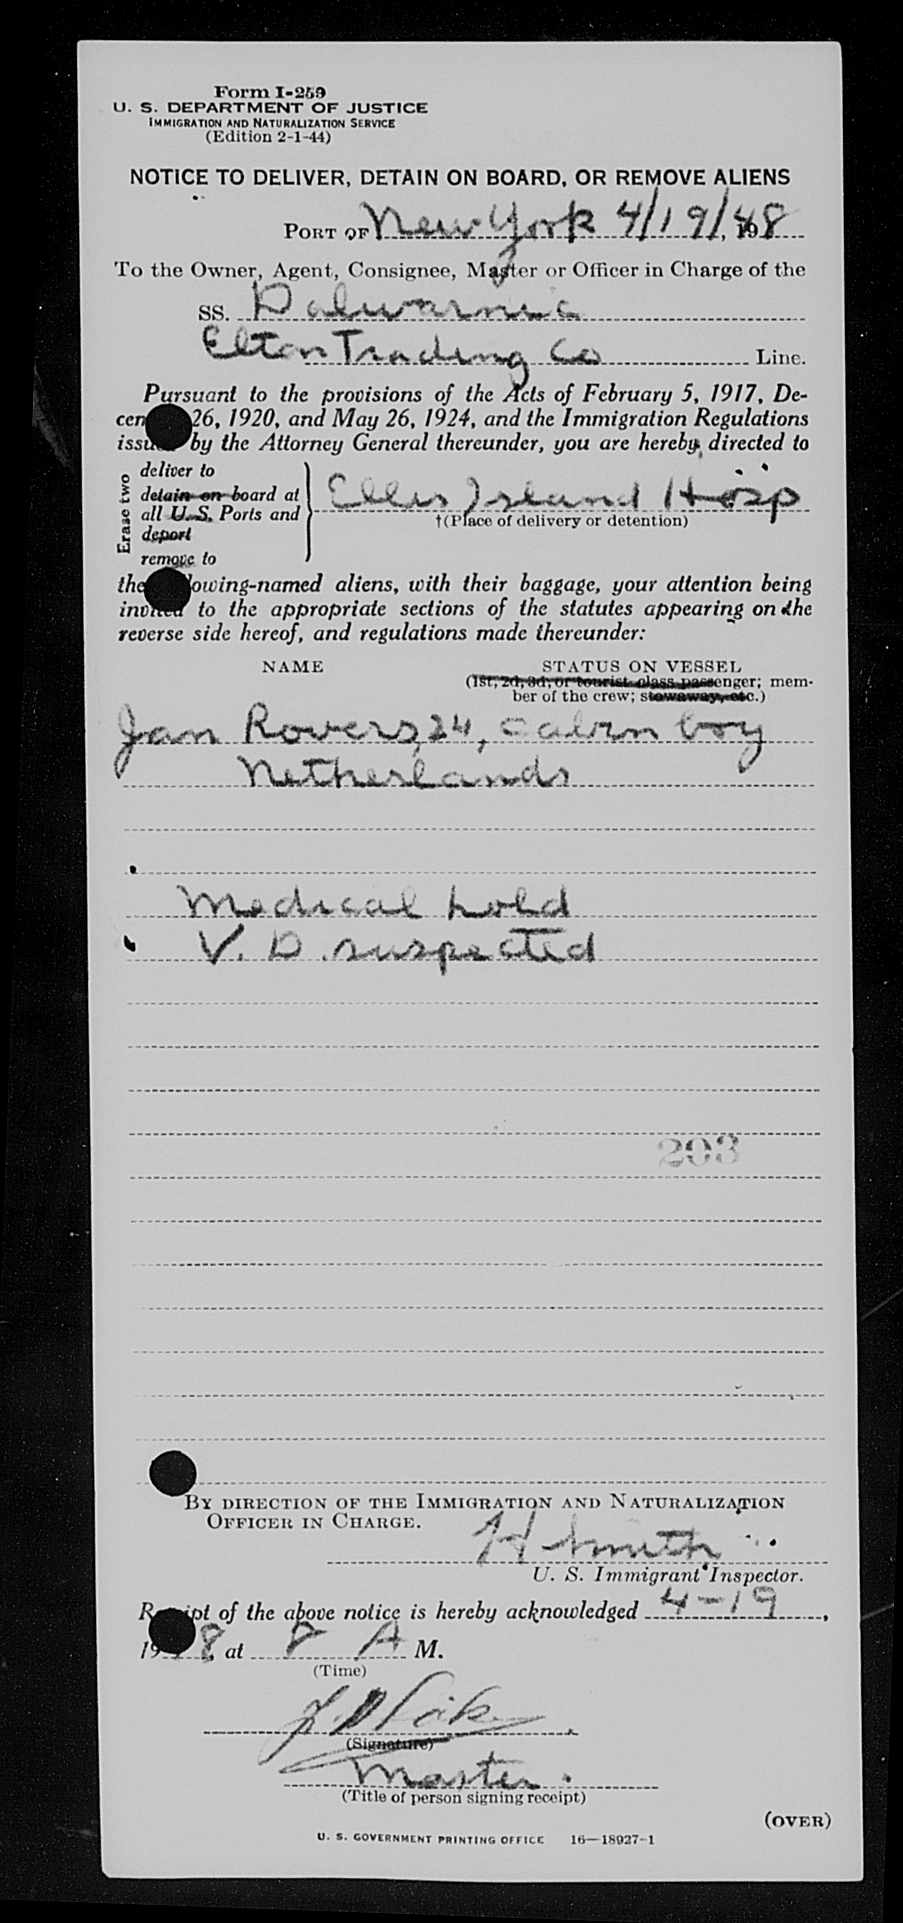 Form I-259
U. S. DEPARTMENT OF JUSTICE
IMMIGRATION AND NATURALIZATION SERVICE
(Edition 2-1-44)
NOTICE TO DELIVER, DETAIN ON BOARD, OR REMOVE ALIENS
PORT OF New York 4/19/48, 19
To the Owner, Agent, Consignee, Master or Officer in Charge of the
SS. Dalwarnic
Elton Trading Co Line.
Pursuant to the provisions of the Acts of February 5, 1917, De-
cem 26, 1920, and May 26, 1924, and the Immigration Regulations
issued by the Attorney General thereunder, you are hereby directed to
Erase two
deliver to
detain on board at
all U.S. Ports and
deport
remove to
Ellis Island Hosp
†(Place of delivery or detention)
the lowing-named aliens, with their baggage, your attention being
invited to the appropriate sections of the statutes appearing on the
reverse side hereof, and regulations made thereunder:
NAME STATUS ON VESSEL
(1st, 2d, 3d, or tourist class passenger; mem-
ber of the crew; stowaway, etc.)
Jan Rovers, 24, cabin boy
Netherlands
Medical hold
V. D. suspected
203
BY DIRECTION OF THE IMMIGRATION AND NATURALIZATION
OFFICER IN CHARGE.
H Smith
U. S. Immigrant Inspector.
Receipt of the above notice is hereby acknowledged 4-19,
1948, at 8 A M.
(Time)
(Signature)
Master.
(Title of person signing receipt)
(OVER)
U. S. GOVERNMENT PRINTING OFFICE 16—18927-1